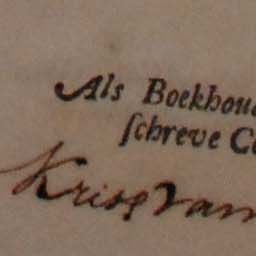 Als Boekhoud
ſchreve Co
Kriss van